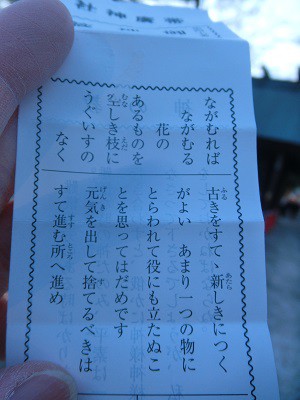 帯廣神社
ながむれば
ながむる
花の
あるものを
空しき枝に
むな
えだ
うぐいすの
なく
古きをすてゝ新しきにつく
ふる
あたら
がよい あまり一つの物に
とらわれて役にも立たぬこ
とを思ってはだめです
元気を出して捨てるべきは
げんき
す
すて進む所へ進め
すす
ところ